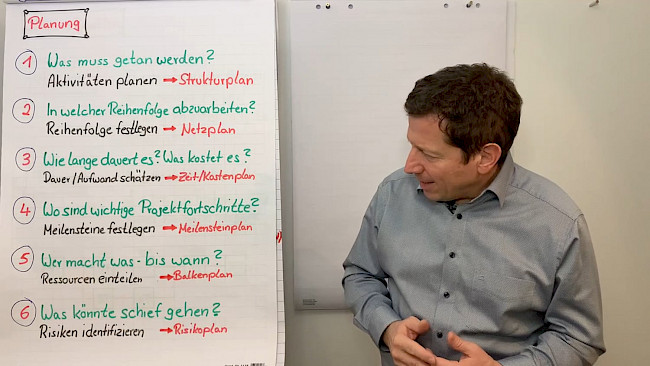 Planung
1 Was muss getan werden?
Aktivitäten planen → Strukturplan
2 In welcher Reihenfolge abzuarbeiten?
Reihenfolge festlegen → Netzplan
3 Wie lange dauert es? Was kostet es?
Dauer/Aufwand schätzen → Zeit/Kostenplan
4 Wo sind wichtige Projektfortschritte?
Meilensteine festlegen → Meilensteinplan
5 Wer macht was - bis wann?
Ressourcen einteilen → Balkenplan
6 Was könnte schief gehen?
Risiken identifizieren → Risikoplan